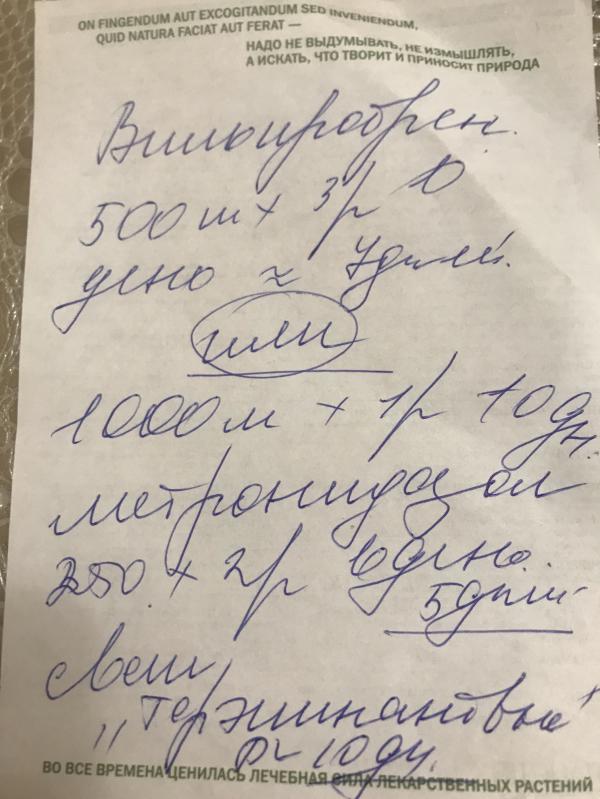 ON FINGENDUM AUT EXCOGITANDUM SED INVENIENDUM,
QUID NATURA FACIAT AUT FERAT —
НАДО НЕ ВЫДУМЫВАТЬ, НЕ ИЗМЫШЛЯТЬ,
А ИСКАТЬ, ЧТО ТВОРИТ И ПРИНОСИТ ПРИРОДА
500 м × 3 р в
день ≈ 7 дней.
или
1000 м × 1 р 10 дн.
метронидазол
250 × 2 р в день
5 дней
Свечи
"Тержинановые"
№ 10 дн.
ВО ВСЕ ВРЕМЕНА ЦЕНИЛАСЬ ЛЕЧЕБНАЯ СИЛА ЛЕКАРСТВЕННЫХ РАСТЕНИЙ